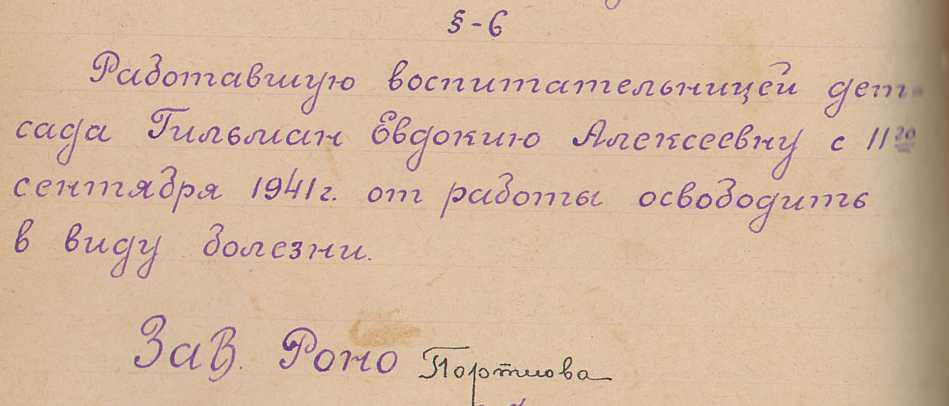 §-6
Работавшую воспитательницей дет-
сада Гильман Евдокию Алексеевну с 11го
сентября 1941 г. от работы освободить
в виду болезни.
Зав. Роно Портнова